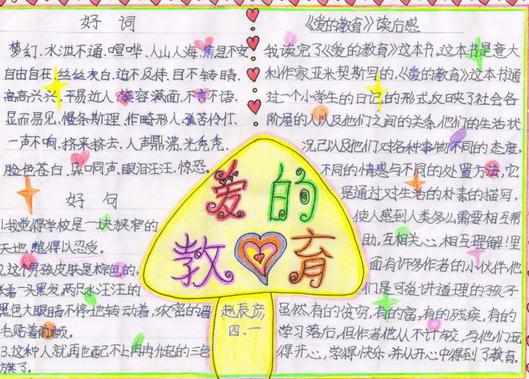 好词
梦幻、水泄不通、喧哗、人山人海、焦急不安
自由自在、丝丝灰白、迫不及待、目不转睛、
高高兴兴、平易近人、笑容满面、不言不语、
显而易见、慢条斯理、作畸形人、孤苦伶仃、
一声不响、挤来挤去、人声鼎沸、光秃秃、
脸色苍白、异口同声、眼泪汪汪、惊恐。
好句
1.我觉得学校是一块狭窄的
天地,难以忍受。
2.这个男孩皮肤是棕色的,
一头黑发,两只水汪汪的
黑色大眼睛不停地转动着,浓密的眉
毛
3.这种人就再也配不上冉冉升起的三色
旗了。
《爱的教育》读后感
我读完了《爱的教育》这本书,这本书是意大
利作家亚米契斯写的,《爱的教育》这本书通
过一个小学生的日记的形式,反映了社会各
阶层的人以及他们之间的关系,他们的生活状
况已以及他们对各种事物不同的态度,
不同的情感与不同的处置方法,它
是通过对生活的朴素的描写,
使人感到人类多么需要相互帮
助,互相关心,相互理解!里
面有许多作者的小伙伴,他
们是可爱、讲道理的孩子
虽然有的贫穷,有的富,有的残疾,有的
学习落后,但作者他从不计较,与他们玩
得开心,学得快乐,并从开心中得到了教育。
爱的
教育
赵辰彦
四.一